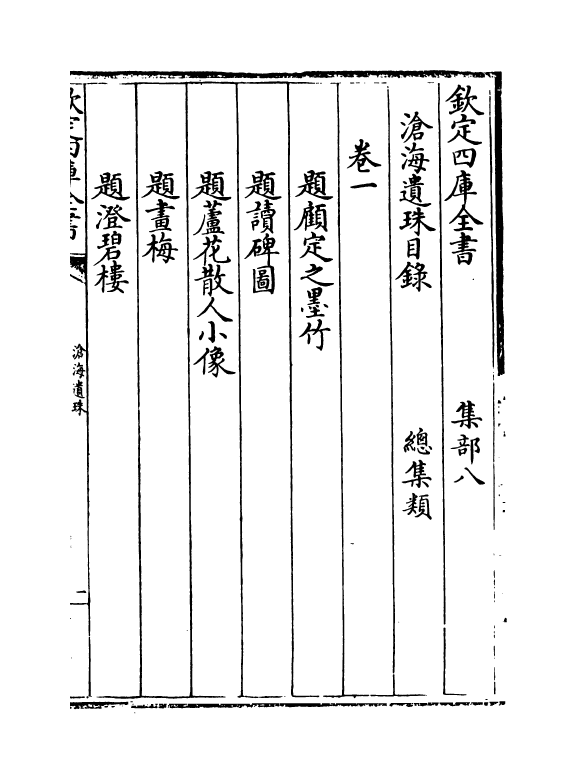 欽定四庫全書　集部八
滄海遺珠目錄　總集類
卷一
題顧定之墨竹
題讀碑圖
題蘆花散人小像
題畫梅
題澄碧樓
欽定四庫全書　滄海遺珠　二